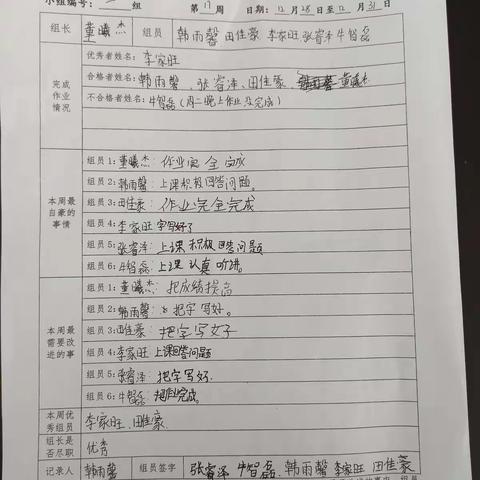 小组编号： 组 第17周 日期：12月28日至12月31日
组长 董曦杰 组员 韩雨馨 田佳豪 李家旺 张睿泽 牛智磊
完成作业情况
优秀者姓名：李家旺
合格者姓名：韩雨馨、张睿泽、田佳豪、董曦杰
不合格者姓名：牛智磊（周二晚上作业没完成）
本周最自豪的事情
组员1：董曦杰：作业完全完成
组员2：韩雨馨：上课积极回答问题。
组员3：田佳豪：作业完全完成
组员4：李家旺 字写好了
组员5：张睿泽：上课积极回答问题
组员6：牛智磊：上课认真听讲。
本周最需要改进的事
组员1：董曦杰：把成绩提高
组员2：韩雨馨：把字写好。
组员3：田佳豪：把字写好
组员4：李家旺 上课回答问题
组员5：张睿泽：把字写好.
组员6：牛智磊：完成。
本周优秀组员 李家旺、田佳豪
组长是否尽职 优秀
记录人 韩雨馨 组员签字 张睿泽 牛智磊、韩雨馨 李家旺 田佳豪